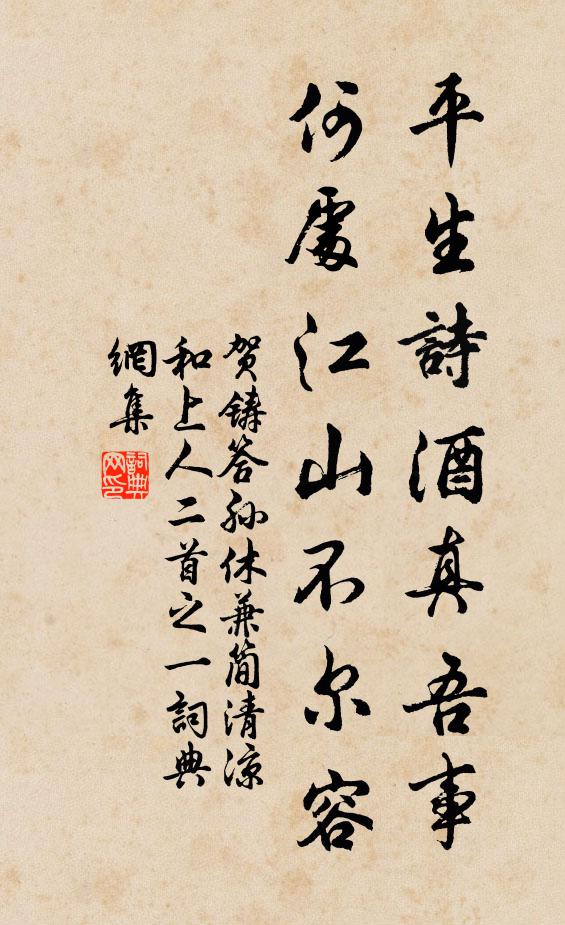 平生詩酒真吾事
何處江山不尔容
贺鑄答孫休兼简清凉
和上人二首之一詞典
網集
詞典
网印